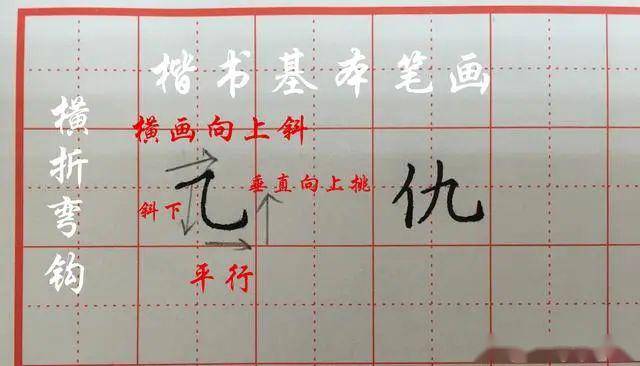 楷书基本笔画
横折弯钩
横画向上斜
垂直向上挑
斜下
平行
⺄
仇